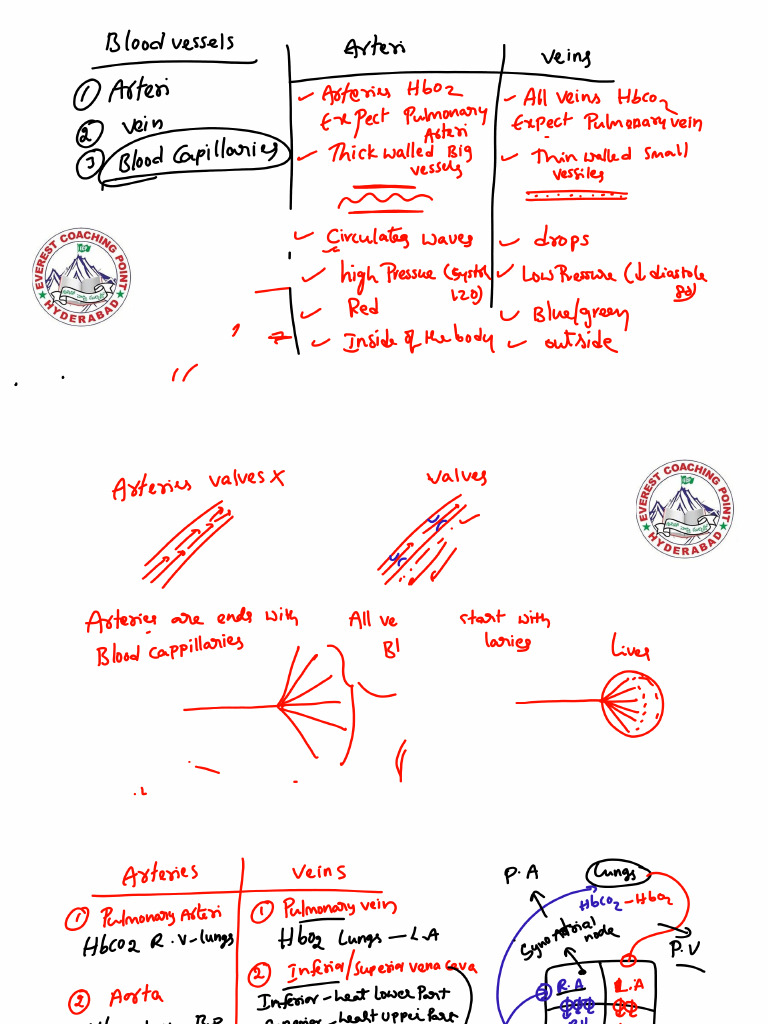 Blood vessels
① Arteri
② vein
③ Blood Capillaries
Arteri
Arteries HbO2
Expect Pulmonary
Arteri
Thick walled Big
vessels
Circulates waves
high Pressure (systol
120)
Red
Inside of the body
veins
All veins HbCO2
Expect Pulmonary vein
Thin walled Small
vessiles
drops
Low Pressure (↓ diastole
80)
Blue/green
outside
EVEREST COACHING POINT
HYDERABAD
Arteries valves X
valves
EVEREST COACHING POINT
HYDERABAD
Arteries are ends with
Blood cappillaries
All ve
Bl
start with
laries
Liver
Arteries
① Pulmonary Arteri
HbCO2 R.V-lungs
② Aorta
veins
① Pulmonary vein
HbO2 Lungs — L.A
② Inferia/Superior vena cava
Inferior - heat lower Part
heart upper Part
P.A
Lungs
HbCO2 - HbO2
Syno Atrial
node
P.V
R.A
L.A